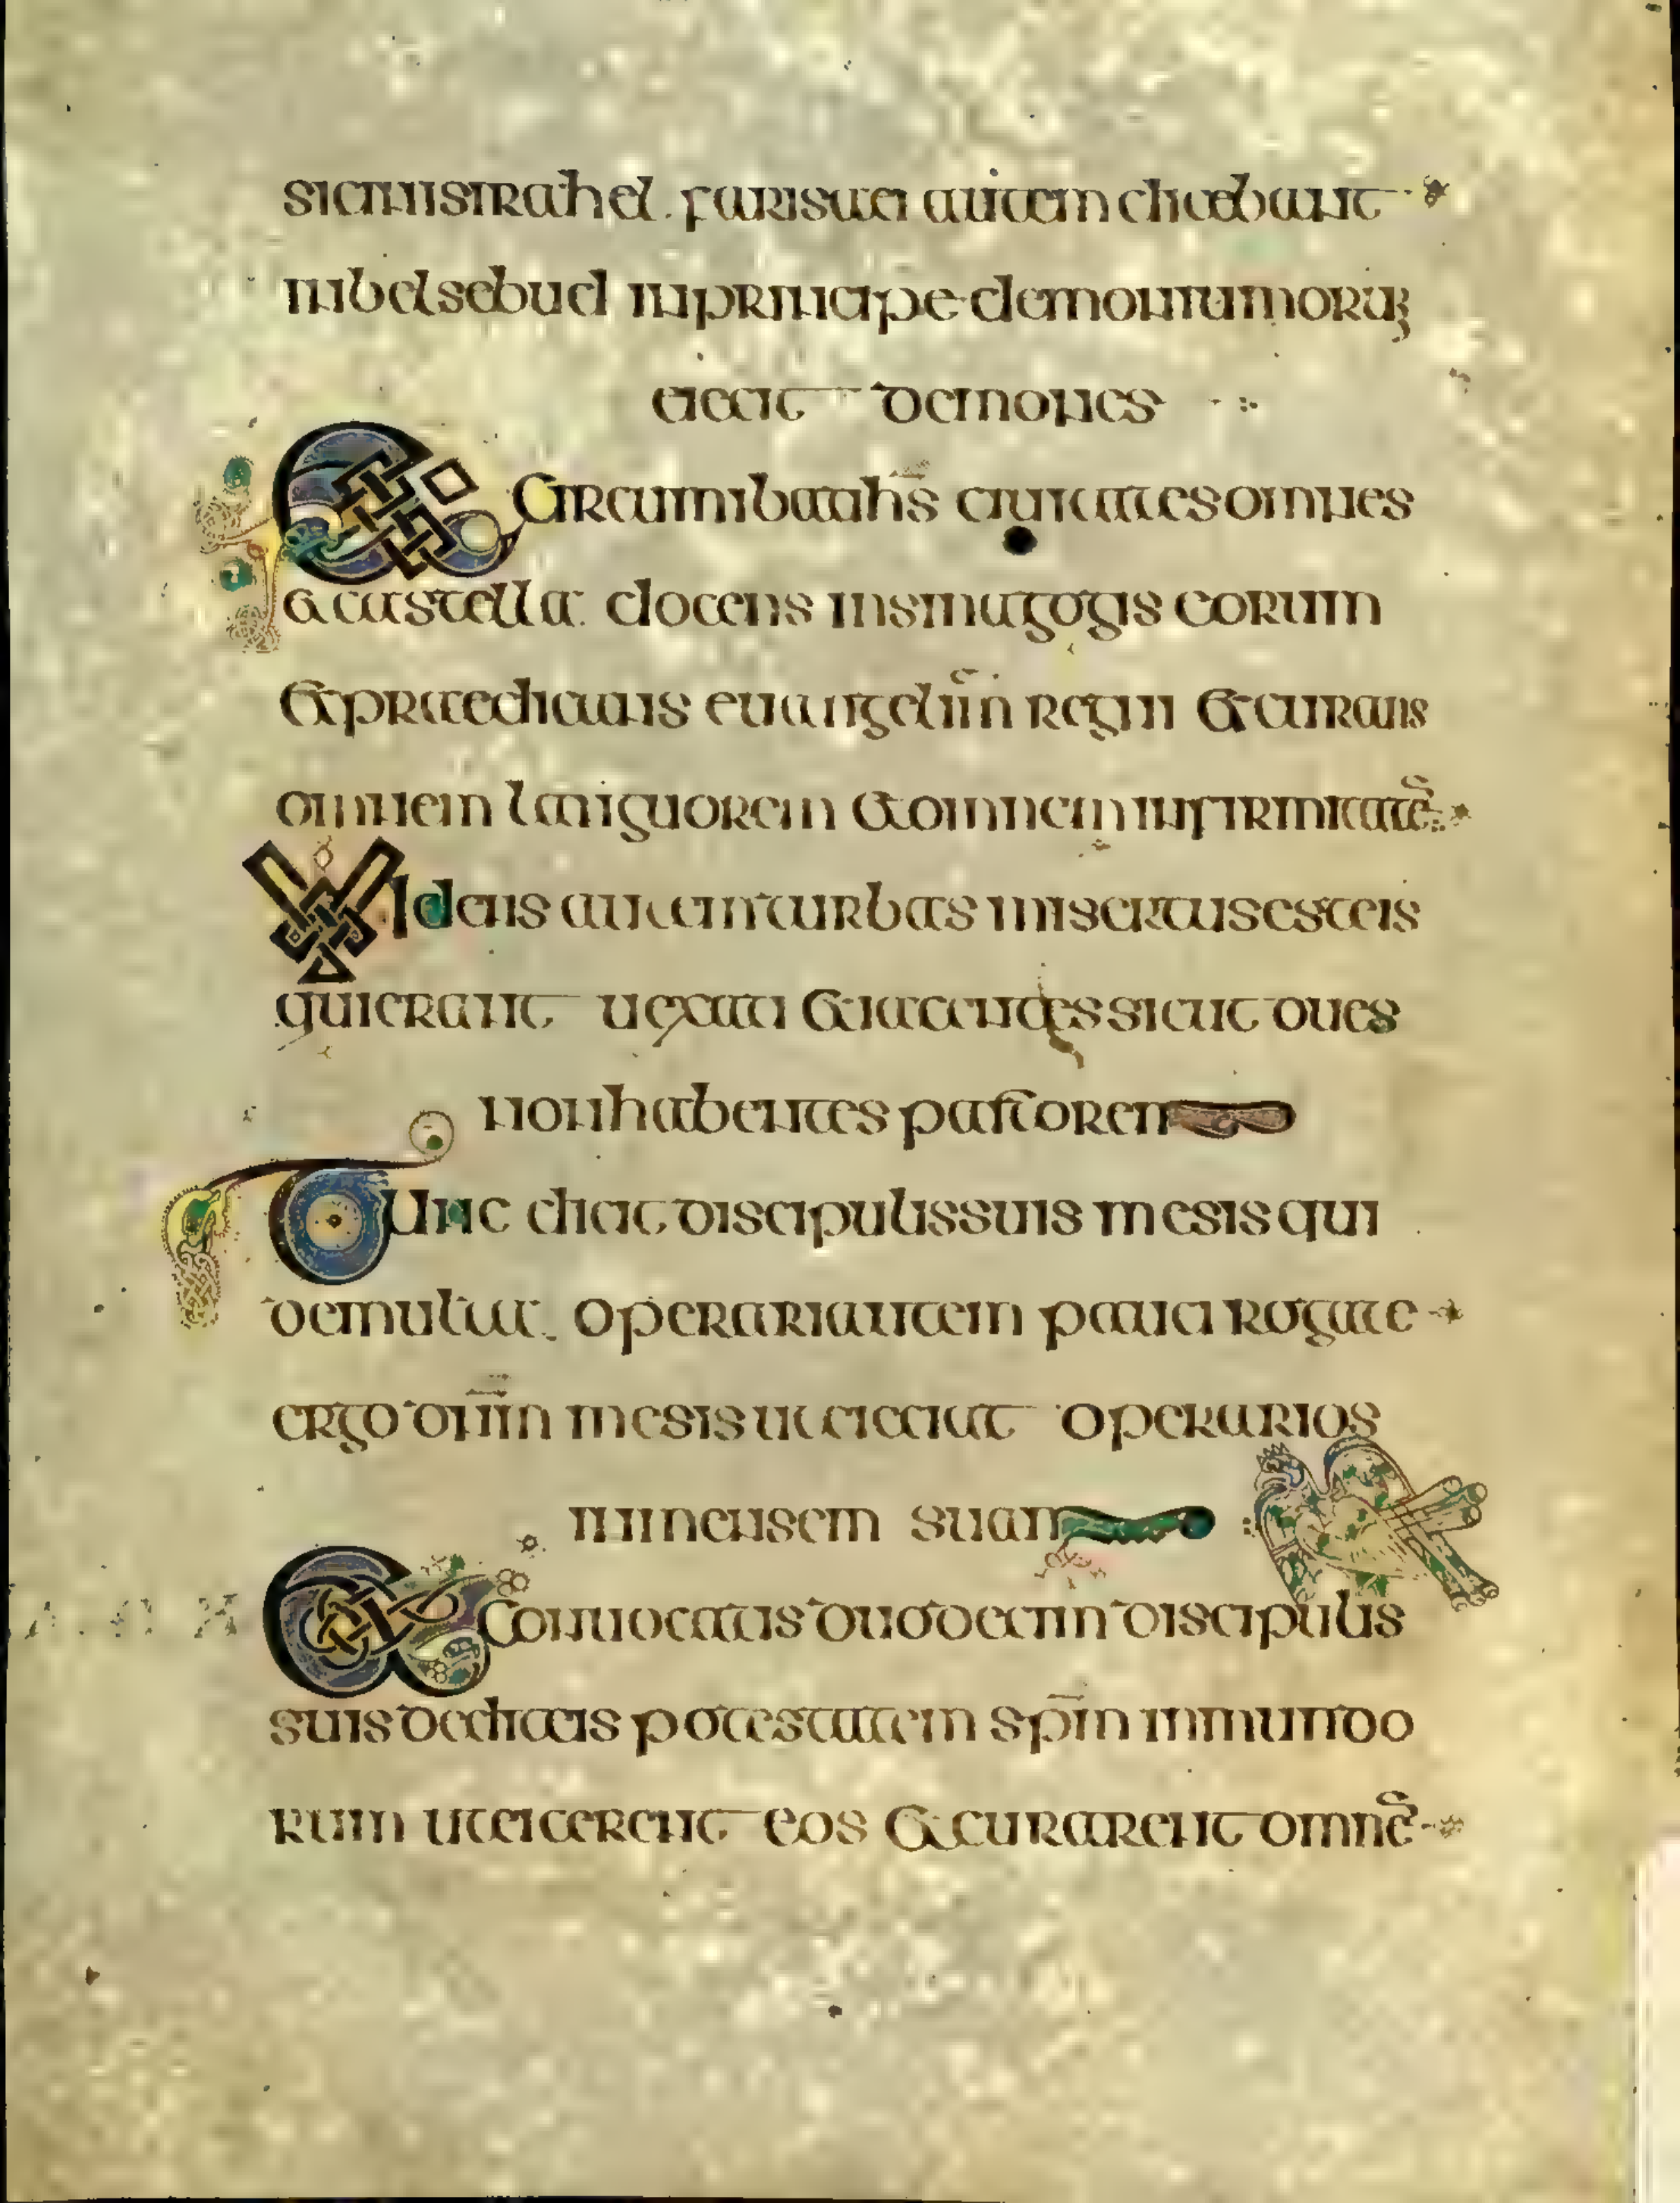 sic in istrahel. farisaei autem dicebant
in belsebud in principe demoniumorum
eiecit demones
Et circumibat ihs ciuitates omnes
et castella docens in sinagogis eorum
et praedicans euangelium regni et curans
omnem languorem et omnem infirmitatē
Uidens autem turbas misertus est eis
qui erant uexati et iacentes sicut oues
non habentes pastorem
Tunc dicit discipulis suis mesis qui
dem multa. operari autem pauci rogate
ergo dnm mesis ut eiciat operarios
in mensem suam
Et conuocatis duodecim discipulis
suis dedit eis potestatem spm inmundo
rum ut eicerent eos et curarent omnē